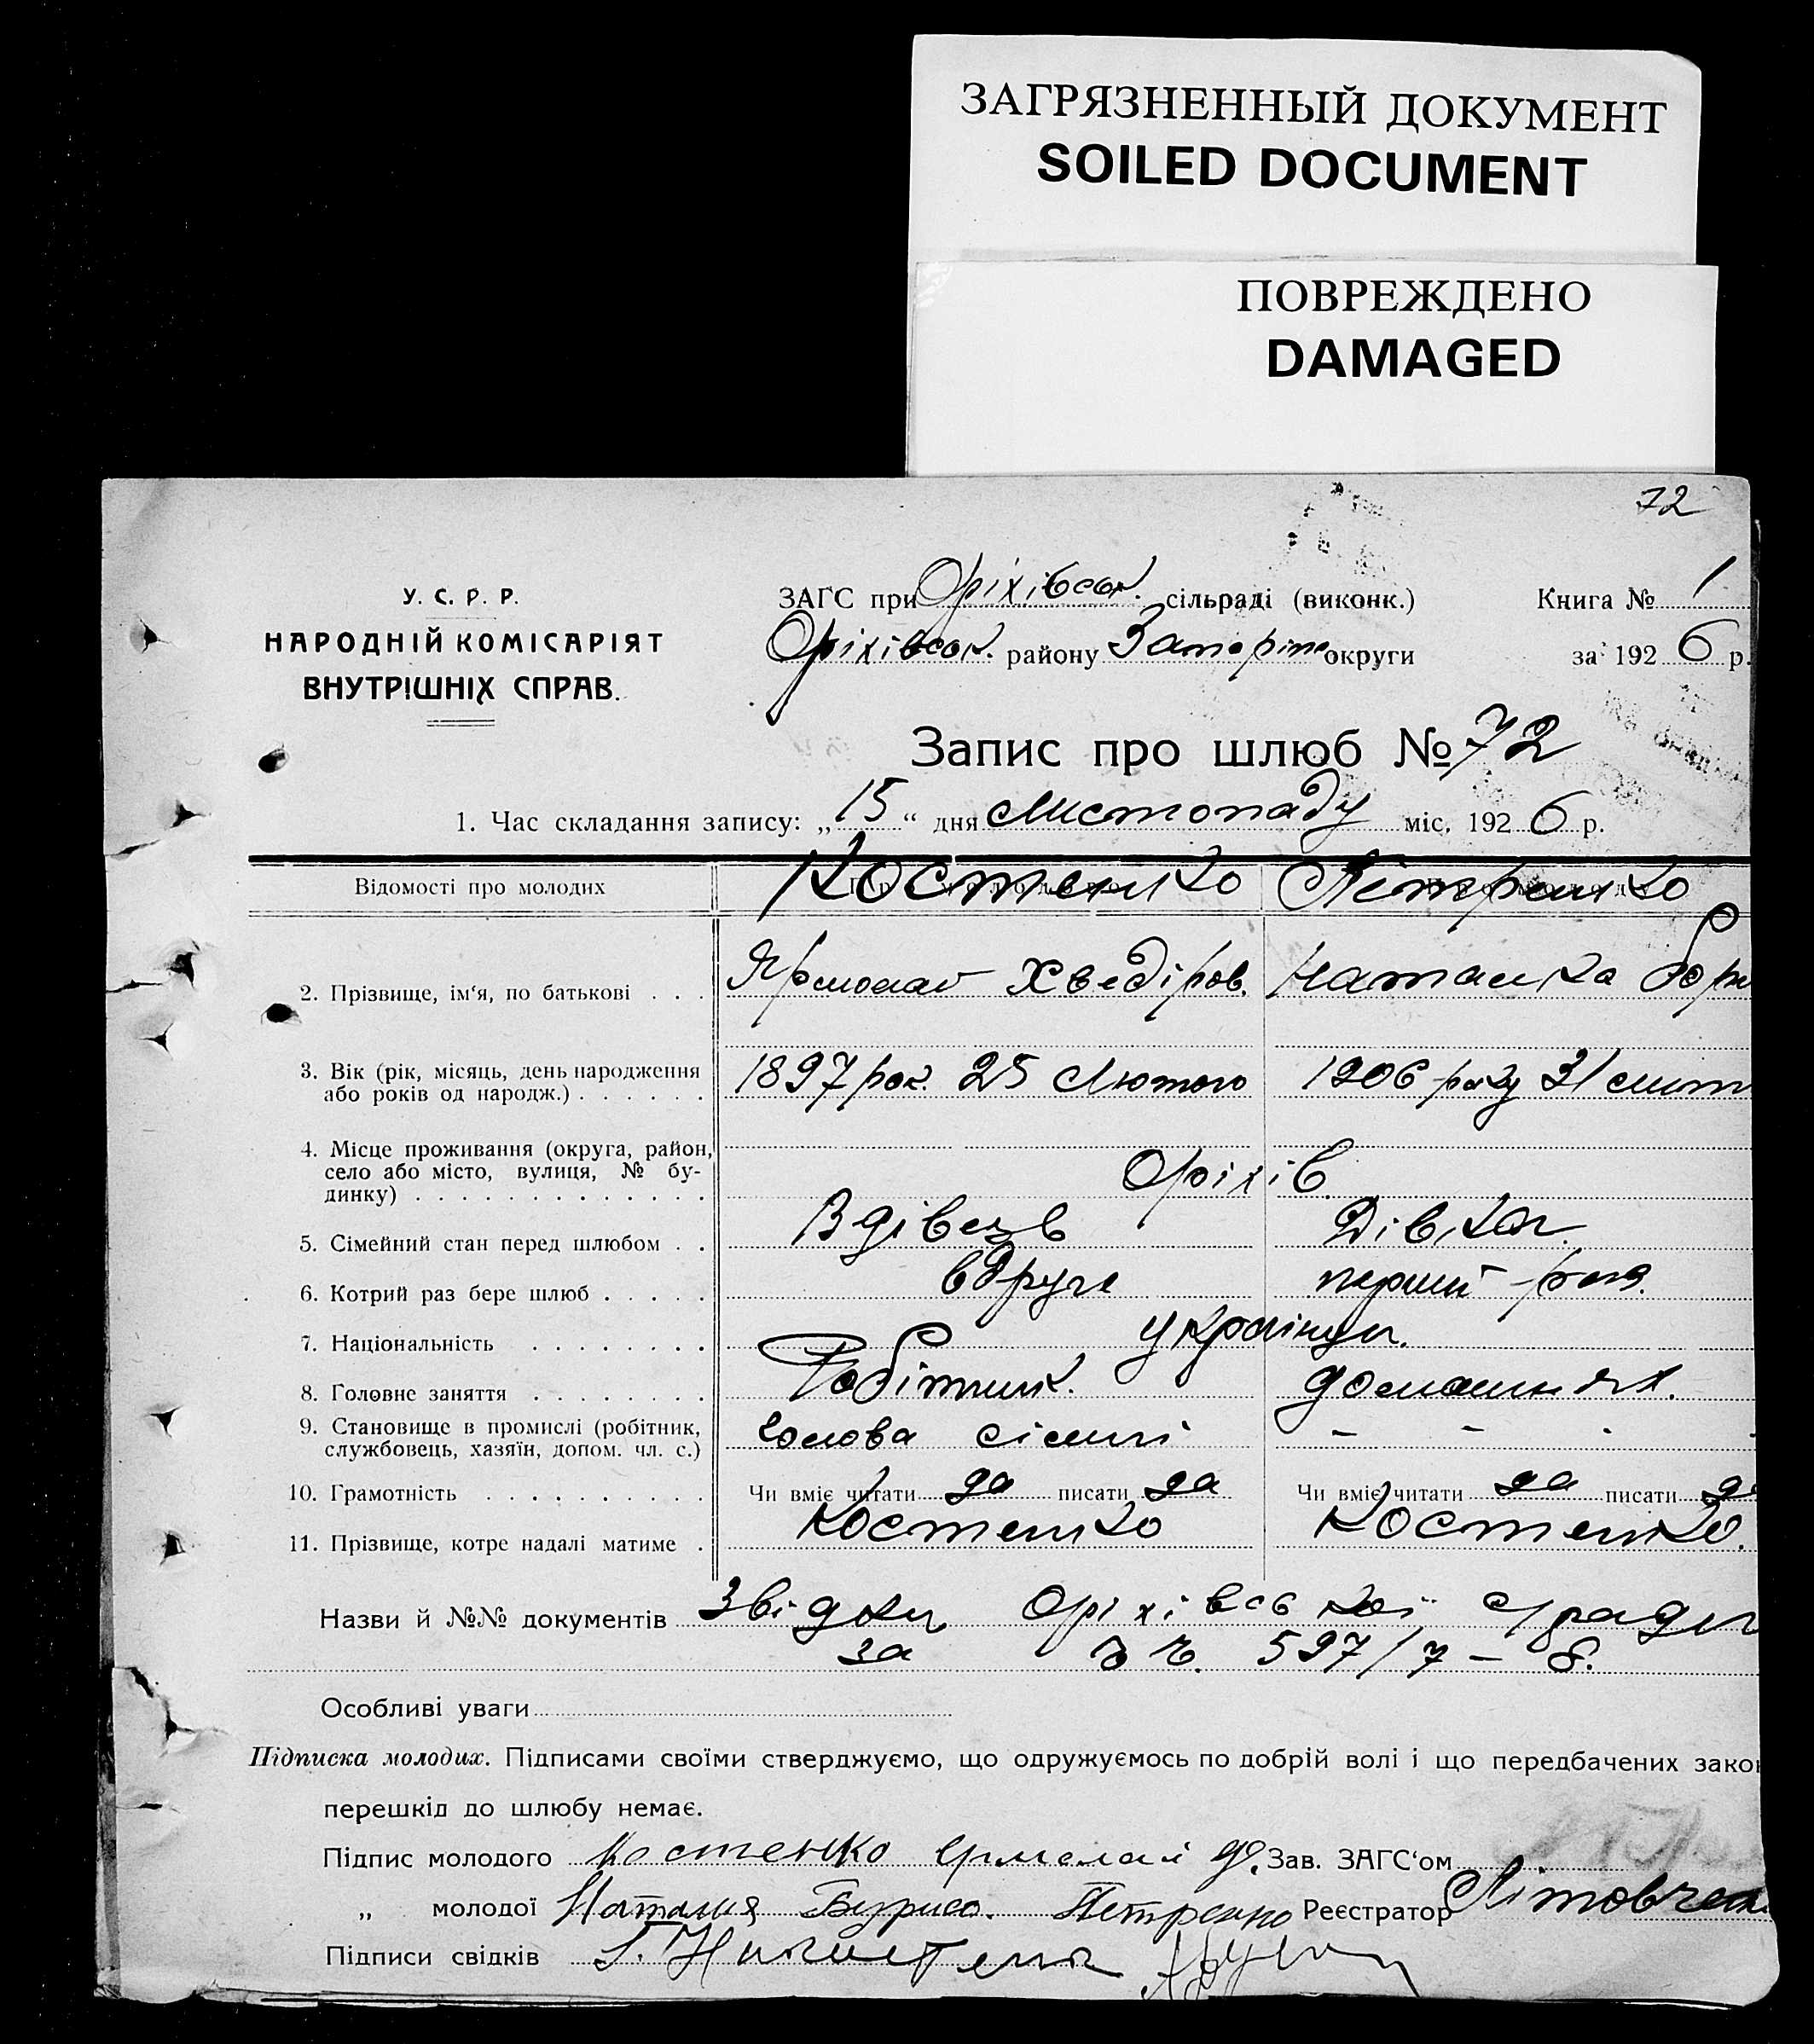 ЗАГРЯЗНЕННЫЙ ДОКУМЕНТ
SOILED DOCUMENT
ПОВРЕЖДЕНО
DAMAGED
72
У. С. Р. Р.
НАРОДНІЙ КОМІСАРІЯТ
ВНУТРІШНІХ СПРАВ.
ЗАГС при Оріхівськ. сільраді (виконк.)
Оріхівськ. району Запоріж. округи
Книга № 1
за 1926 р.
Запис про шлюб № 72
1. Час складання запису: „15“ дня Листопаду міс. 1926 р.
Відомості про молодих Костенко Петренко
2. Прізвище, ім‘я, по батькові . . . Хведіров. Наталка
3. Вік (рік, місяць, день народження 1897 рок. 25 Лютого 1906 року 31
або років од народж.) . . . . . .
4. Місце проживання (округа, район,
село або місто, вулиця, № бу- Оріхів
динку) . . . . . . . . . . . . .
5. Сімейний стан перед шлюбом . . Вдівець Дівка.
6. Котрий раз бере шлюб . . . . . вдруге перший раз.
7. Національність . . . . . . . . українці.
8. Головне заняття . . . . . . . Робітник. домашнях.
9. Становище в промислі (робітник, голова сімьї - - -
службовець, хазяїн, допом. чл. с.)
10. Грамотність . . . . . . . . . . Чи вміє читати да писати да Чи вміє читати да писати да
11. Прізвище, котре надалі матиме . Костенко Костенко.
Назви й №№ документів Звідки Оріхівської
за 597/7 – 8.
Особливі уваги
Підписка молодих. Підписами своїми стверджуємо, що одружуємось по добрій волі і що передбачених зако
перешкід до шлюбу немає.
Підпис молодого Костенко Зав. ЗАГС‘ом
„ молодої Наталия Петренко Реєстратор
Підписи свідків